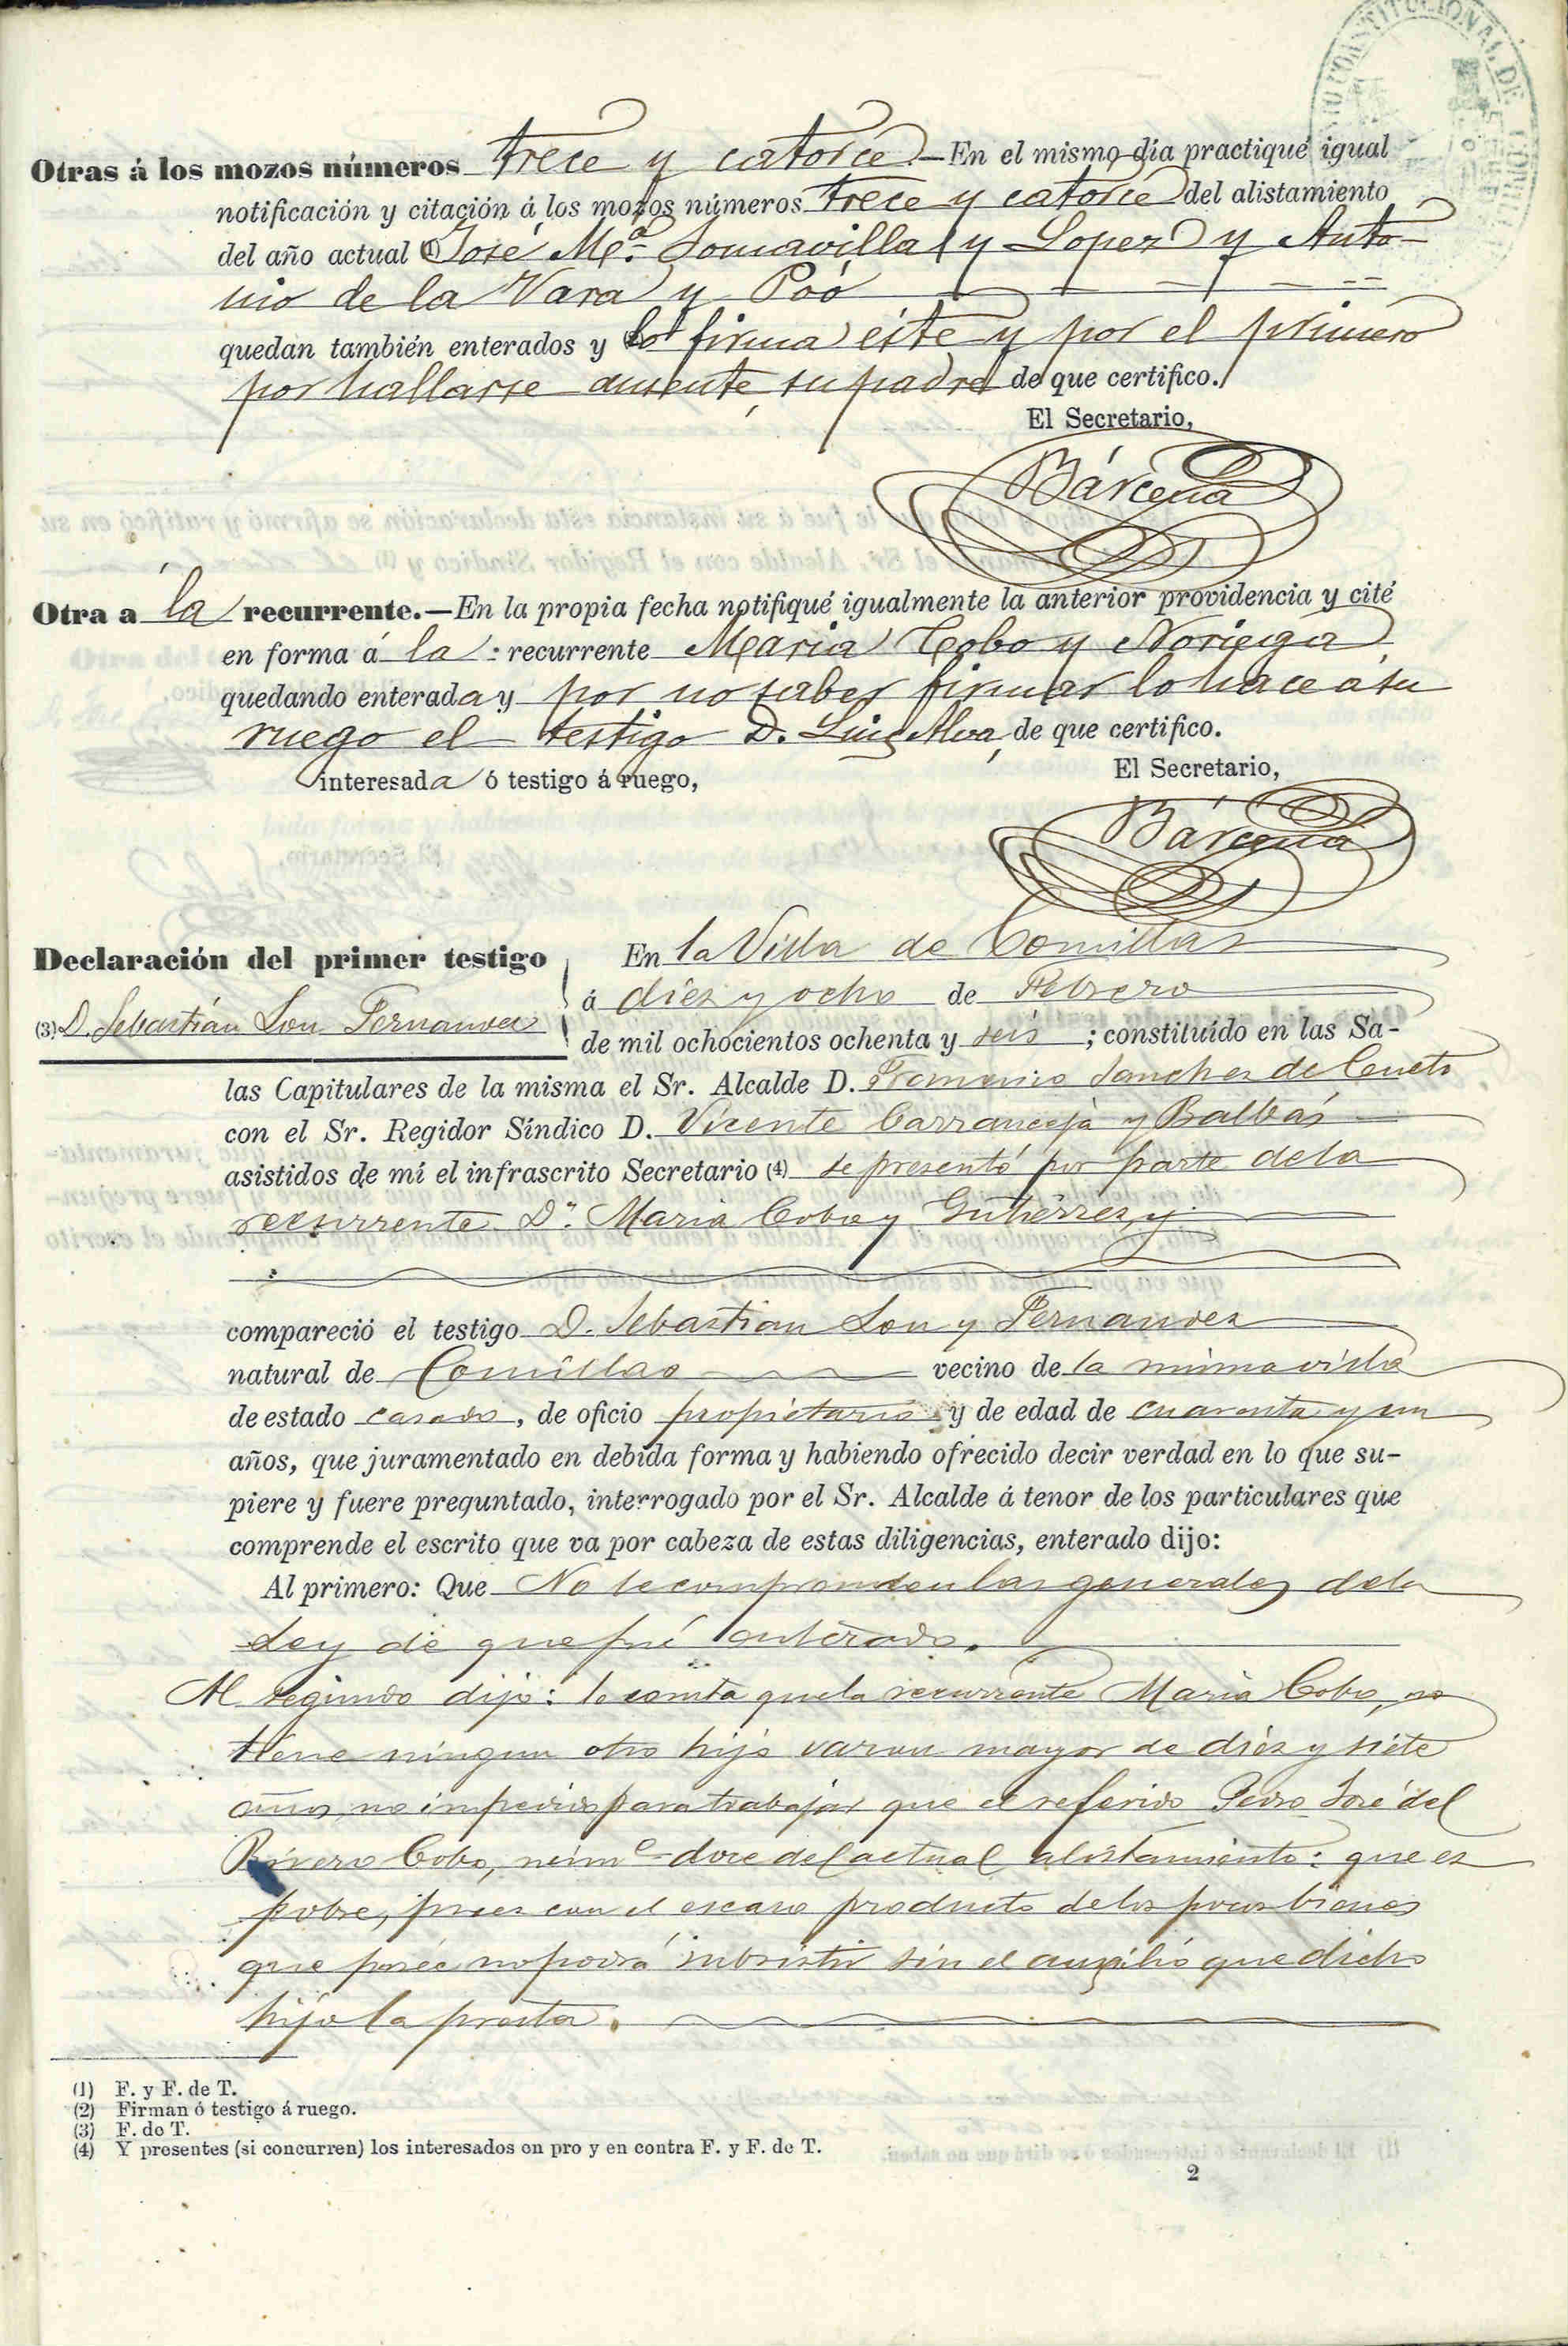 CONSTITUCIONAL DE
Otras á los mozos números trece y catorce.—En el mismo día practiqué igual
notificación y citación á los mozos números trece y catorce del alistamiento
del año actual (1) José M.ª Somavilla y Lopez y Anto-
nio de la Vara y Poó
quedan también enterados y lo firma este y por el primero
por hallarse ausente, su padre de que certifico.
El Secretario,
Bárcena
Otra a la recurrente.—En la propia fecha notifiqué igualmente la anterior providencia y cité
en forma á la recurrente Maria Cobo y Noriega
quedando enterada y por no saber firmar lo hace á su
ruego el testigo D. Luis Alva, de que certifico.
interesada ó testigo á ruego,
El Secretario,
Bárcena
Declaración del primer testigo
(3) D. Sebastián Son Fernandez
En la Villa de Comillas
á diez y ocho de Febrero
de mil ochocientos ochenta y seis ; constituído en las Sa-
las Capitulares de la misma el Sr. Alcalde D. Sanchez de Cueto
con el Sr. Regidor Síndico D. Vicente Carranceja y Balbás
asistidos de mí el infrascrito Secretario (4) se presentó por parte de la
recurrente D.ª Maria Cobo y Gutierrez, y
compareció el testigo D. Sebastian Son y Fernandez
natural de Comillas vecino de la misma villa
de estado casado, de oficio propietario y de edad de cuarenta y un
años, que juramentado en debida forma y habiendo ofrecido decir verdad en lo que su-
piere y fuere preguntado, interrogado por el Sr. Alcalde á tenor de los particulares que
comprende el escrito que va por cabeza de estas diligencias, enterado dijo:
Al primero: Que No le comprenden las generales de la
Ley de que fué enterado.
Al segundo dijo: le consta que la recurrente Maria Cobo, no
tiene ningun otro hijo varon mayor de diez y siete
años no impedido para trabajar que el referido Pedro José del
Rivero Cobo, núm.º doce del actual alistamiento: que es
pobre, pues con el escaso producto de los pocos bienes
que poseé no podrá subsistir sin el auxilio que dicho
hijo la presta.
(1) F. y F. de T.
(2) Firman ó testigo á ruego.
(3) F. de T.
(4) Y presentes (si concurren) los interesados en pro y en contra F. y F. de T.
2